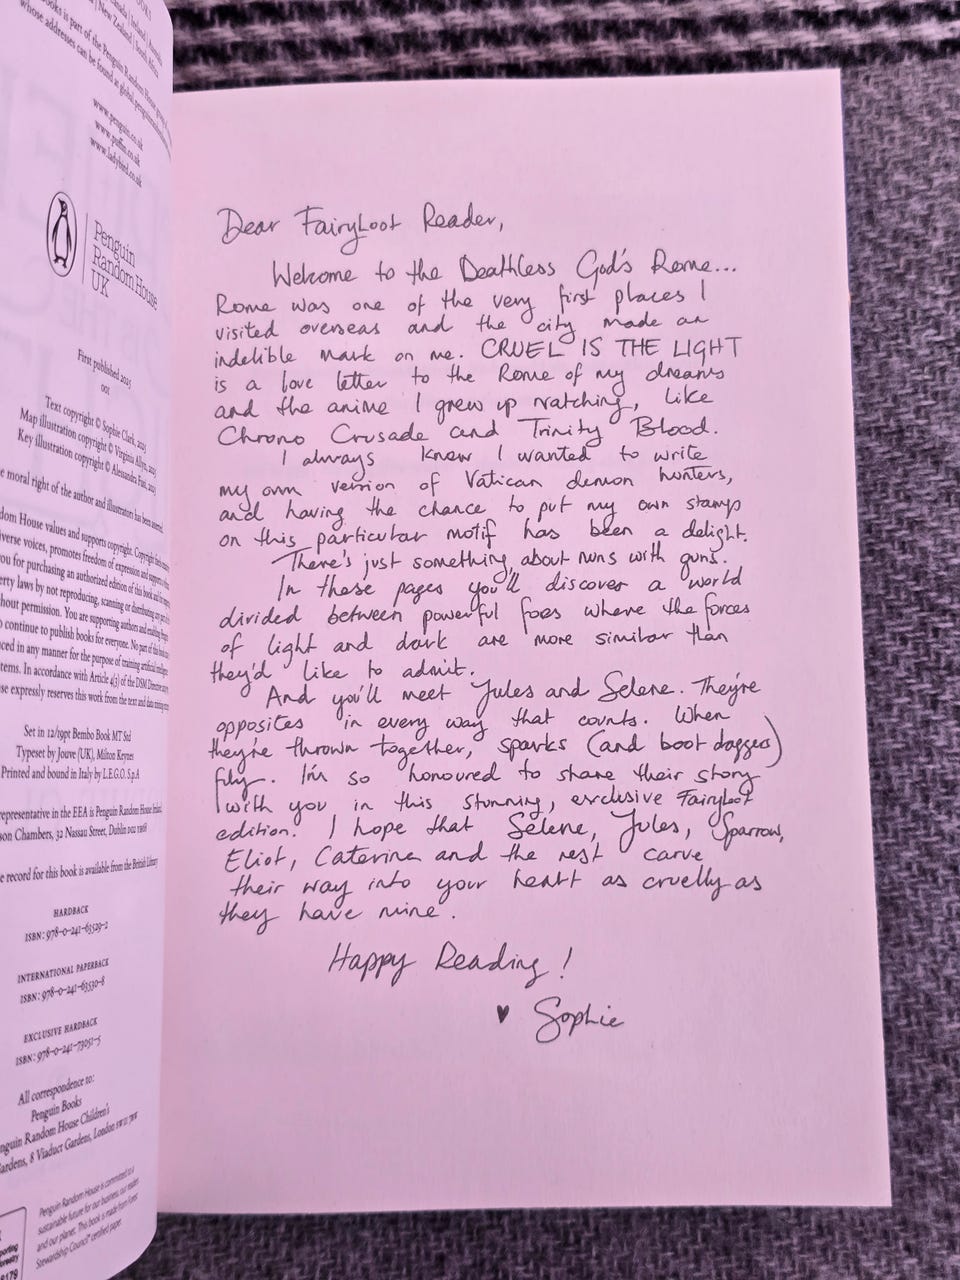 Books is part of the Penguin Random House
whose addresses can be found at global.penguin
www.penguin.co.uk
www.puffin.co.uk
www.ladybird.co.uk
Penguin
Random House
UK
First published 2025
001
Text copyright © Sophie Clark, 2025
Map illustration copyright © Virginia Allyn, 2025
Key illustration copyright © Alessandra Fusi, 2025
moral right of the author and illustrators has been asserted
Random House values and supports copyright. Copyright
diverse voices, promotes freedom of expression and supports
you for purchasing an authorized edition of this book and for
property laws by not reproducing, scanning or distributing any part of it
without permission. You are supporting authors and enabling
to continue to publish books for everyone. No part of this book
in any manner for the purpose of training artificial
systems. In accordance with Article 4(3) of the DSM Directive
expressly reserves this work from the text and data mining
Set in 12/19pt Bembo Book MT Std
Typeset by Jouve (UK), Milton Keynes
Printed and bound in Italy by L.E.G.O. S.p.A
representative in the EEA is Penguin Random House Ireland,
Chambers, 32 Nassau Street, Dublin D02 YH68
record for this book is available from the British Library
HARDBACK
ISBN: 978-0-241-63529-2
INTERNATIONAL PAPERBACK
ISBN: 978-0-241-63530-8
EXCLUSIVE HARDBACK
ISBN: 978-0-241-73051-5
All correspondence to:
Penguin Books
Penguin Random House Children's
Gardens, 8 Viaduct Gardens, London SW11 7BW
Penguin Random House is committed to a
sustainable future for our business, our readers
and our planet. This book is made from Forest
Stewardship Council® certified paper.
Dear FairyLoot Reader,
Welcome to the Deathless God's Rome...
Rome was one of the very first places I
visited overseas and the city made an
indelible mark on me. CRUEL IS THE LIGHT
is a love letter to the Rome of my dreams
and the anime I grew up watching, like
Chrono Crusade and Trinity Blood.
I always knew I wanted to write
my own version of Vatican demon hunters,
and having the chance to put my own stamp
on this particular motif has been a delight.
There's just something about nuns with guns.
In these pages you'll discover a world
divided between powerful foes where the forces
of light and dark are more similar than
they'd like to admit.
And you'll meet Jules and Selene. They're
opposites in every way that counts. When
they're thrown together, sparks (and boot daggers)
fly. I'm so honoured to share their story
with you in this stunning, exclusive FairyLoot
edition. I hope that Selene, Jules, Sparrow,
Eliot, Caterina and the rest carve
their way into your heart as cruelly as
they have mine.
Happy Reading!
♥ Sophie